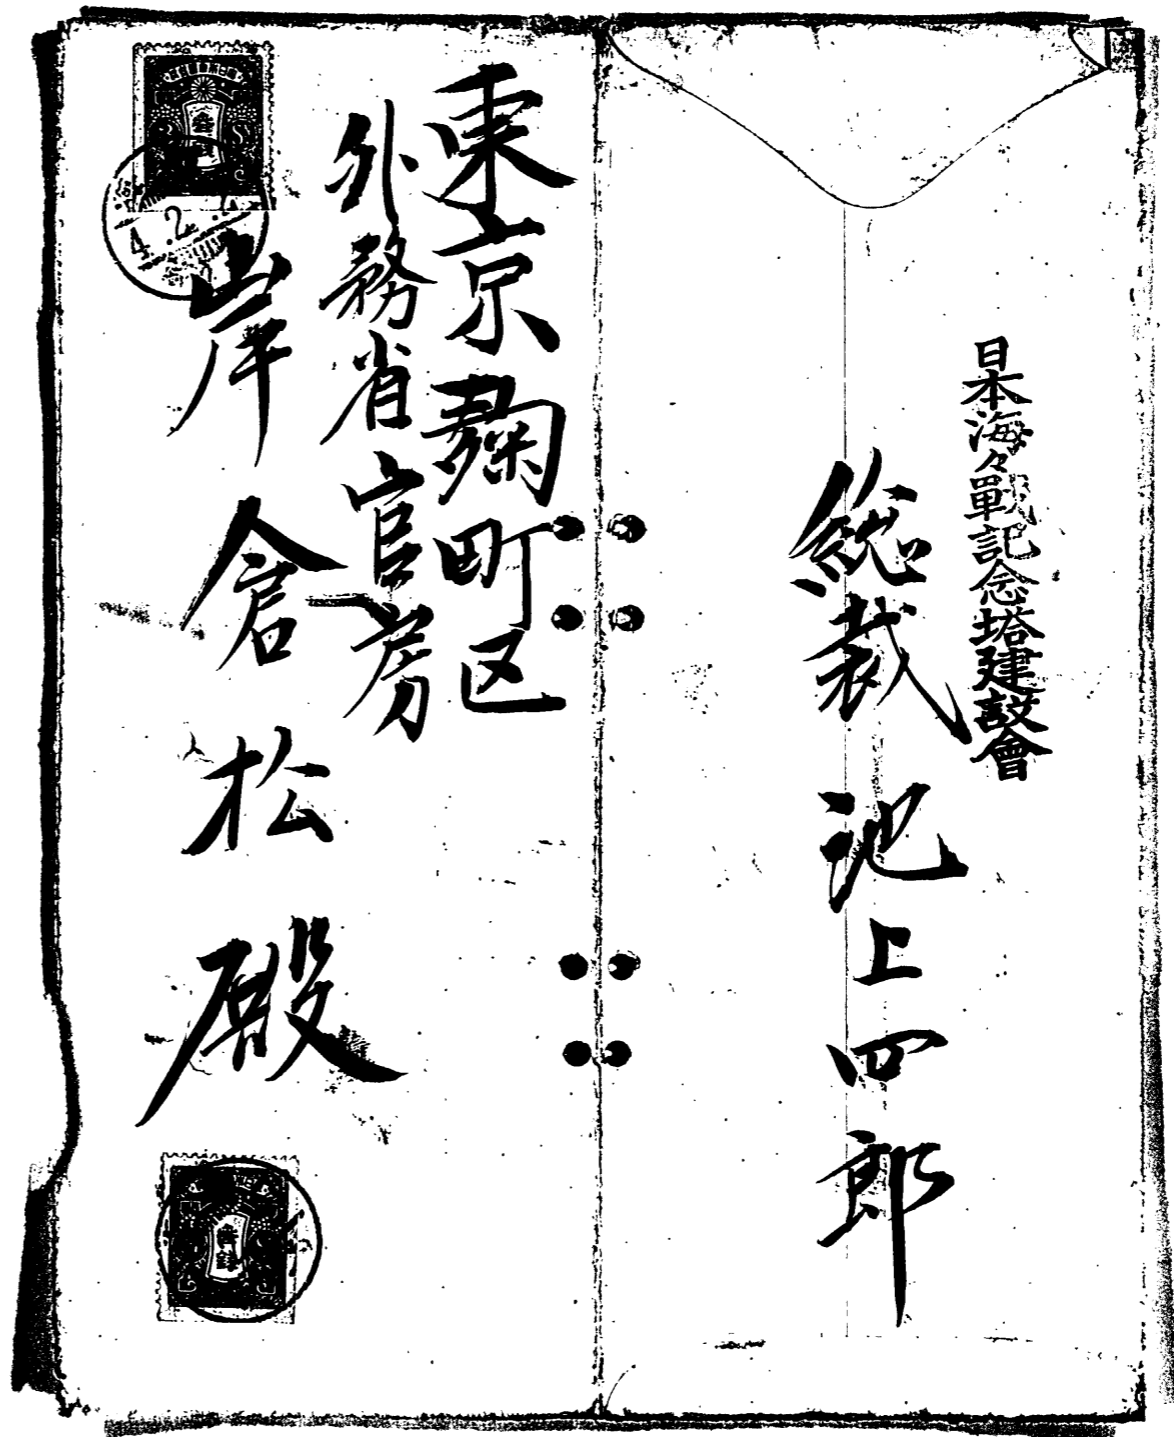 日本海々戰記念塔建設會
総裁 池上四郎
東京麹町区
外務省官房
岸倉松殿
4.2.
壹銭